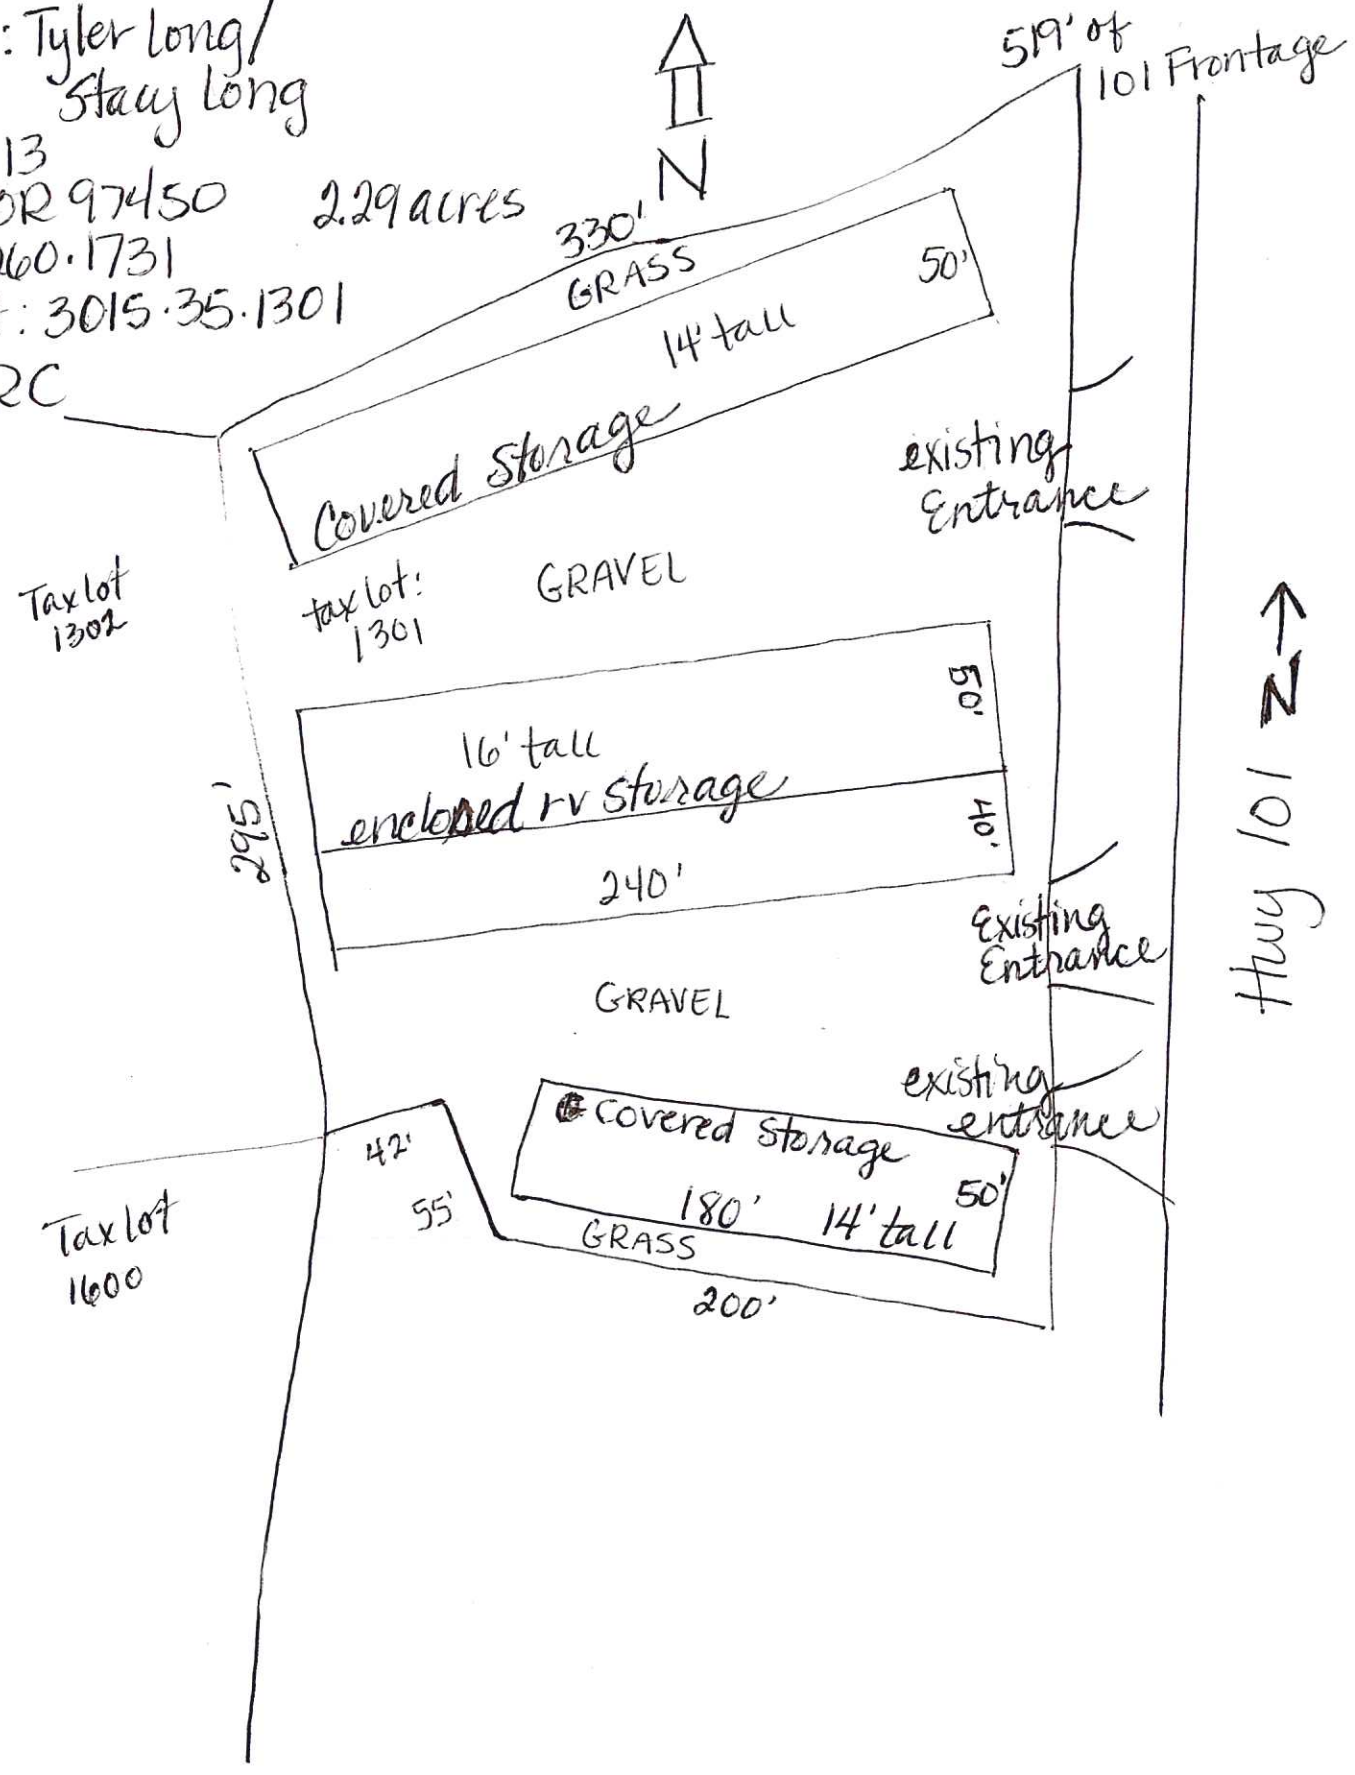 : Tyler Long/
Stacy Long
13
OR 97450
2.29 acres
260.1731
t: 3015.35.1301
RC
N
519' of
101 Frontage
330'
GRASS
50'
14' tall
Covered Storage
existing
Entrance
Tax lot
1302
tax lot:
1301
GRAVEL
50'
16' tall
enclosed rv storage
40'
240'
295'
Hwy 101 N →
Existing
Entrance
GRAVEL
existing
entrance
Covered Storage
42'
55'
50'
180'
14' tall
GRASS
200'
Tax lot
1600